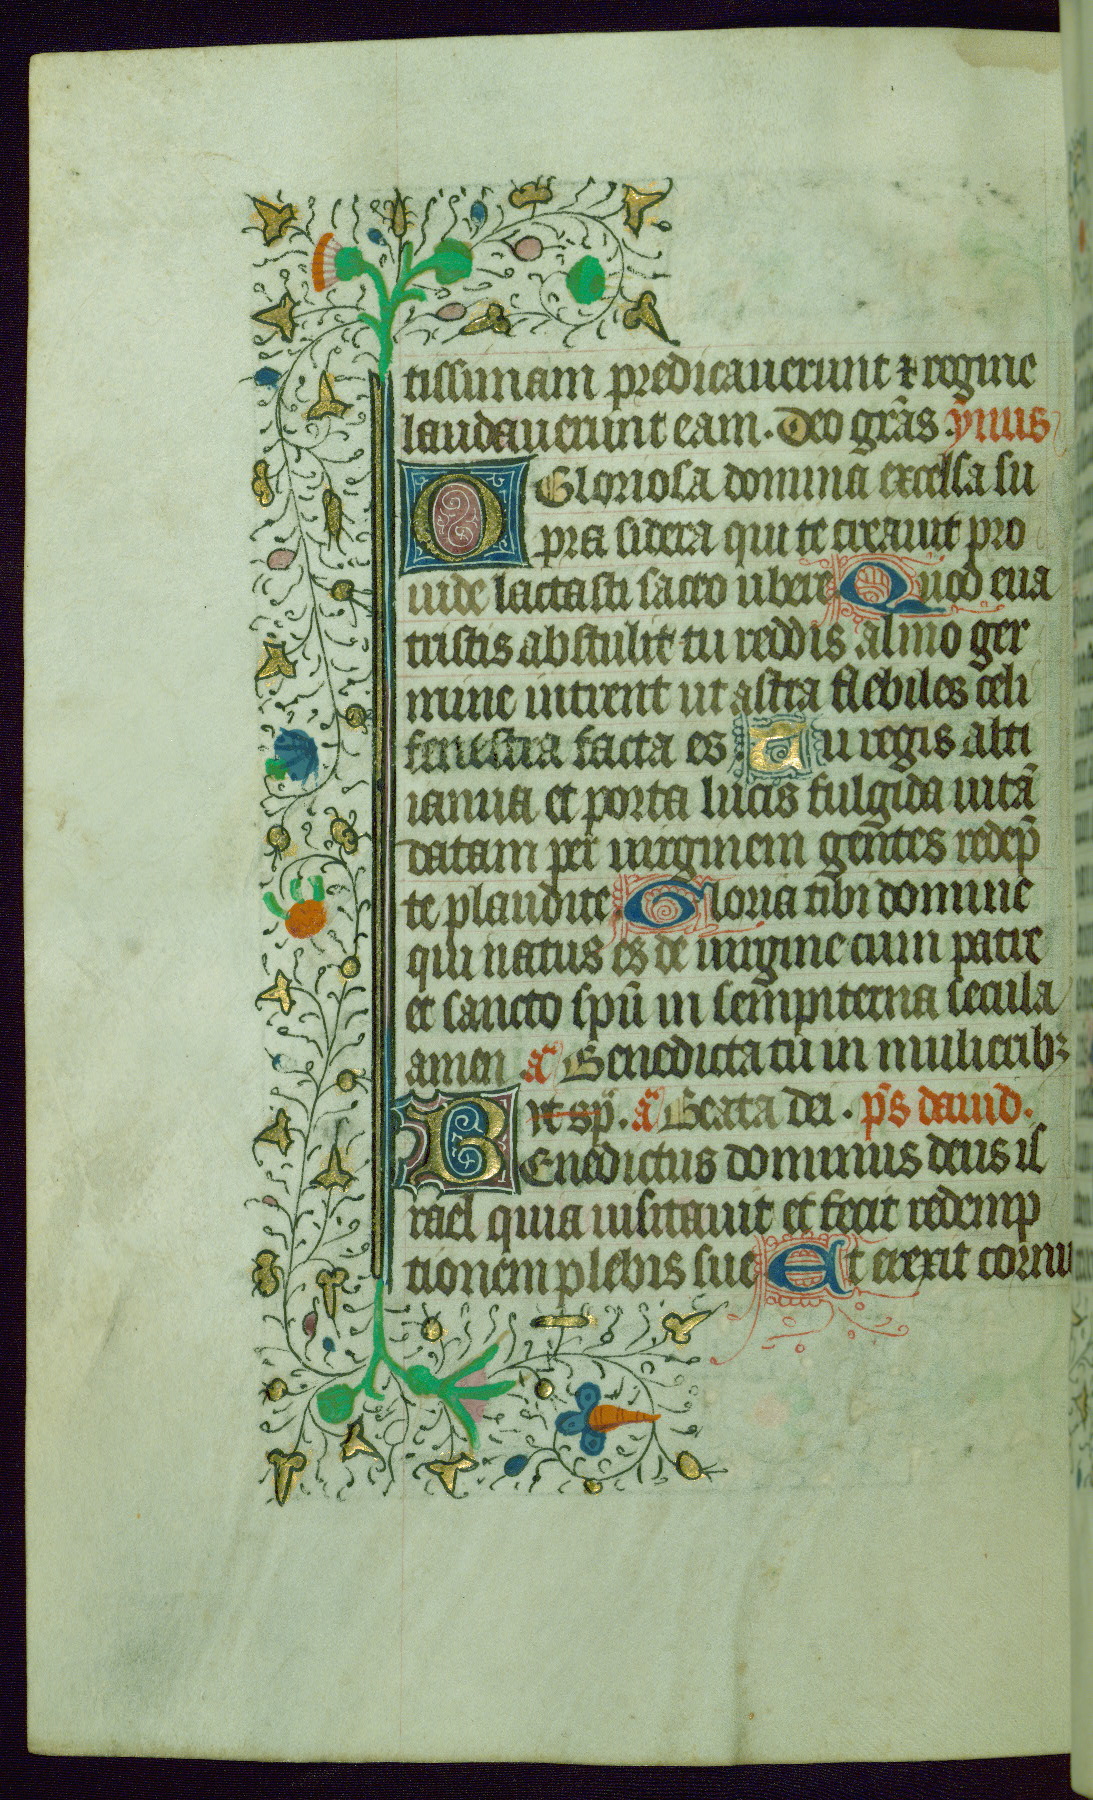 tissimam predicauerunt ⁊ regine
laudauerunt eam. Deo grãs. ymus
O Gloriosa domina excelsa su
pra sidera qui te creauit pro
uide lactasti sacro ubere Quod eua
tristis abstulit tu reddis almo ger
mine intrent ut astra flebiles celi
fenestra facta es Tu regis alti
ianua et porta lucis fulgida uitã
datam per uirginem gentes redep̃
te plaudite Gloria tibi domine
qui natus es de uirgine cum patre
et sancto spũ in sempiterna secula
amen añ Benedicta tu in mulieribꝫ
et sp̃. añ Beata dei. ps̃ dauid.
Benedictus dominus deus is
rael quia uisitauit et fecit redemp
tionem plebis sue Et erexit cornu